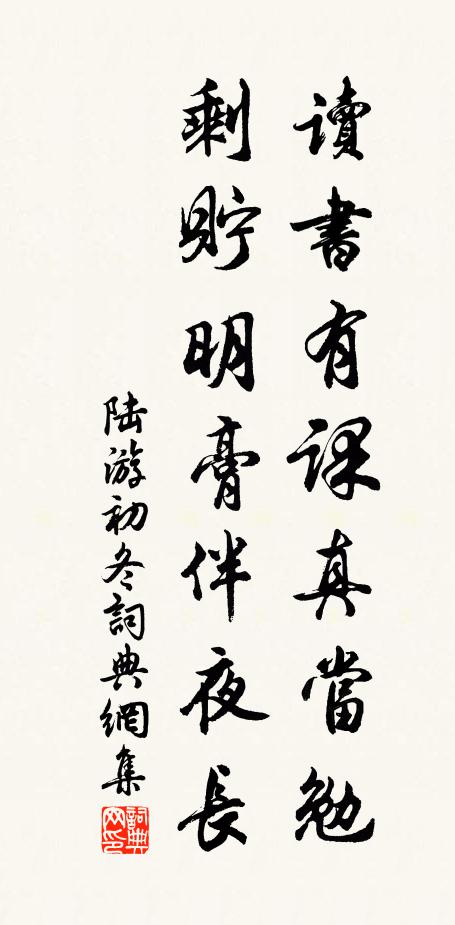 讀書有課真當勉
剩貯明膏伴夜長
陸游初冬詞典網集
詞典网印